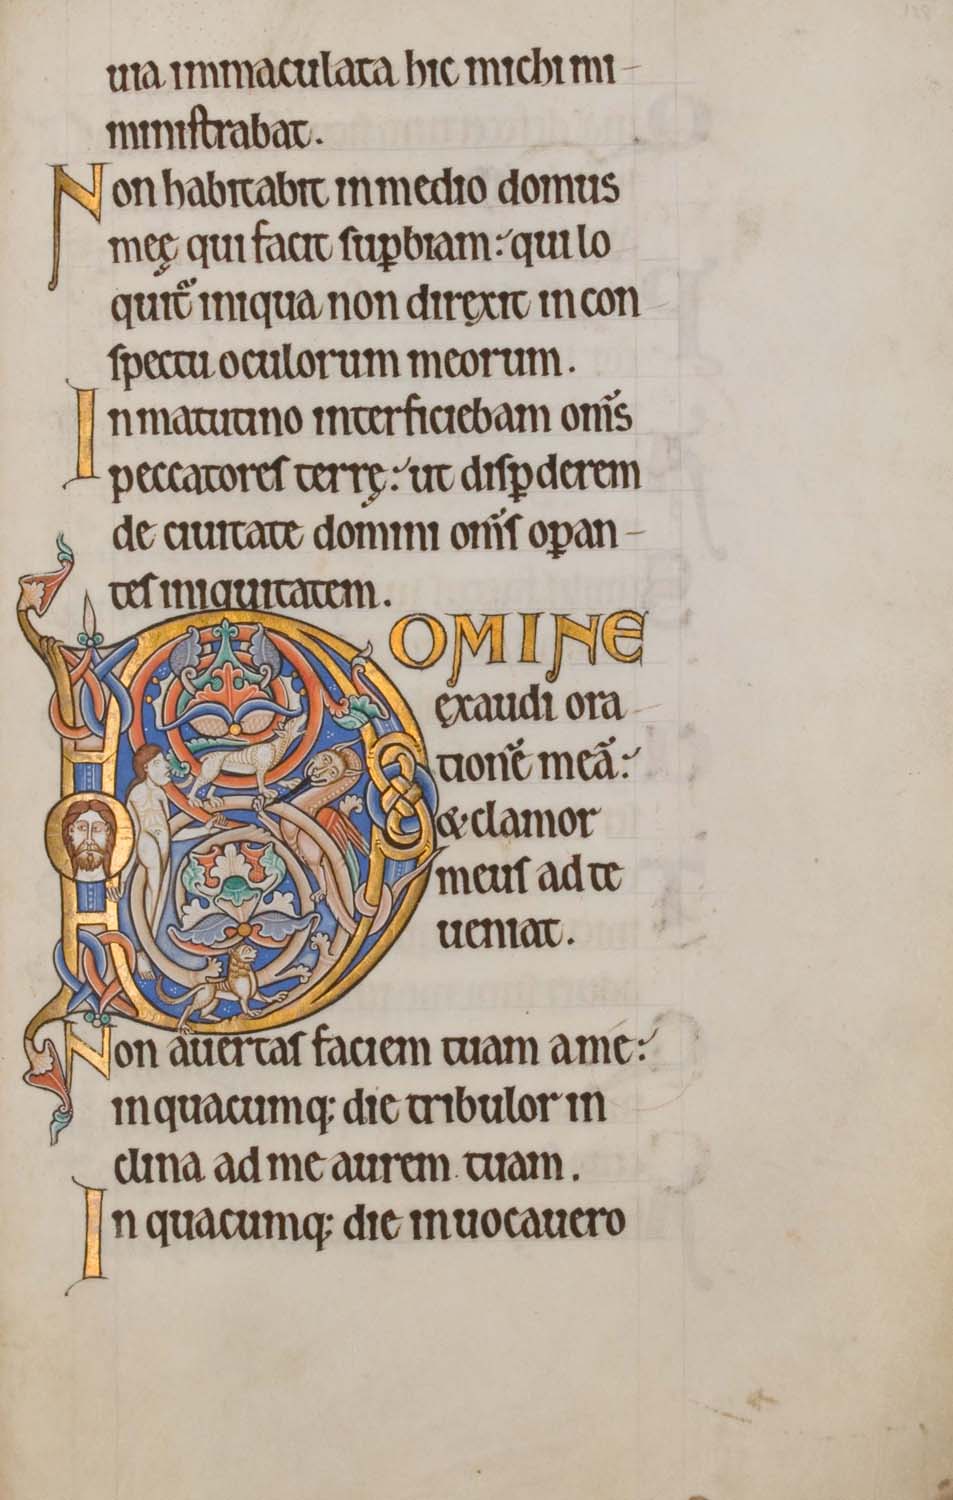 uia immaculata hic michi mi-
ministrabat.
Non habitabit in medio domus
meę qui facit sup̱biam: qui lo
quit᷑ iniqua non diręxit in con
spectu oculorum meorum.
In matutino interficiebam om̄s
peccatores terrę: ut disp̱derem
de ciuitate domini om̄s op̱an-
tes iniquitatem.
DOMINE
ęxaudi ora
tionē meā:
& clamor
meus ad te
ueniat.
Non auertas faciem tuam a me:
in quacumq; die tribulor in
clina ad me aurem tuam.
In quacumq; die inuocauero